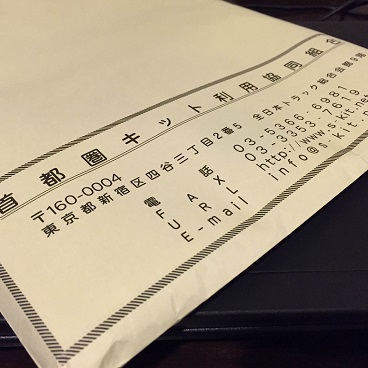 首都圏キット利用協同組合
〒160-0004
東京都新宿区四谷三丁目2番5 全日本トラック総合会館9階
電話 03-5366-6981
FAX 03-3353-7619
URL http://www.s-kit.net
E-mail info@s-kit.